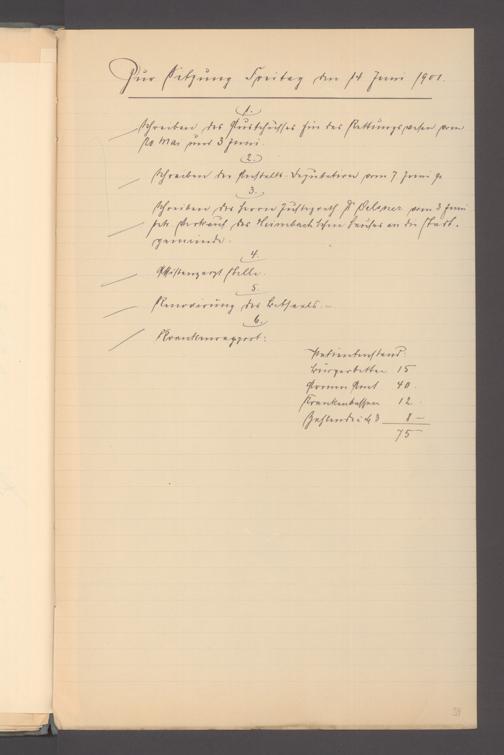 Zur Sitzung Freitag den 14 Juni 1901.
1.
Schreiben des Ausschusses für das Rettungswesen vom
20 Mai und 3 Juni
2.
Schreiben der Anstalts-Deputation vom 7 Juni
3.
Schreiben des Herrn Justizrath Dr Oelsner vom 3 Juni
betr. Verkauf des Heimbach'schen Hauses an die Stadt-
gemeinde.
4.
Assistenzarzt Stelle.
5.
Renovirung des Betsaals.-
6.
Krankenrapport:
Patientenstand.
Bürgerbetten 15
Armen Amt 40.
Krankenkassen 12.
Zahlende 8 -
75
39